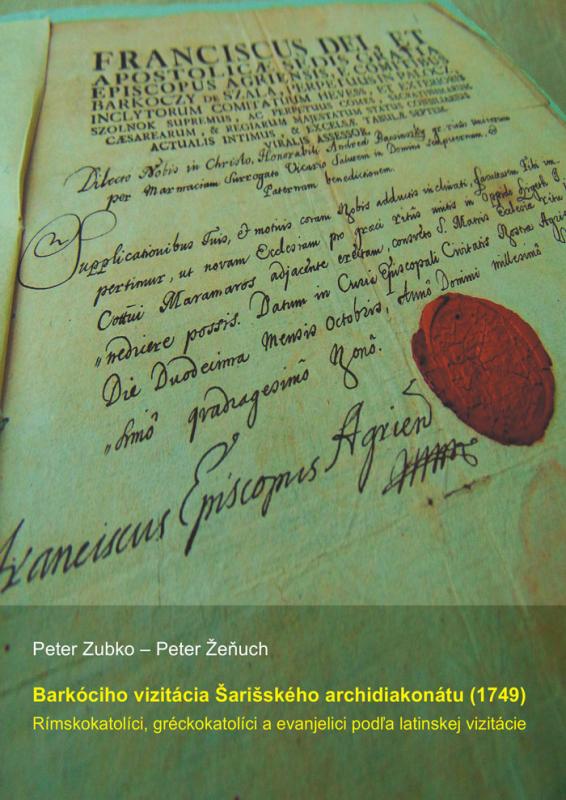 FRANCISCUS DEI, ET
APOSTOLICÆ SEDIS GRATIA
EPISCOPUS AGRIENSIS, E COMITIBUS
BARKOCZY DE SZALA, PERPETUUS IN PALOCZ,
INCLYTORUM COMITATUUM HEVESS, ET EXTERIORIS
SZOLNOK SUPREMUS, AC PERPETUUS COMES,
CÆSAREARUM, & REGIARUM MAJESTATUM STATUS CONSILIARIUS
ACTUALIS INTIMUS, & EXCELSÆ TABULÆ SEPTEM-
VIRALIS ASSESSOR.
Dilecto Nobis in Christo, Honorabili Andreæ Bacsinszky gr. ritus Unitorum
per Marmatiam Surrogato Vicario Salutem in Domino sempiternam, &
Paternam benedictionem.
Supplicationibus Tuis, et motivis coram Nobis adductis inclinati, facultatem Tibi im-
pertimur, ut novam Ecclesiam pro græci ritus unitis in Oppido
Cottui Maramaros adjacente erectam, consveto S. Matris Ecclesiæ ritu
nedicere possis. Datum in Curia Episcopali Civitatis Nostræ
Die Duodecima Mensis Octobris, Anno Domini millesimo
qvadragesimô Nonô.
Franciscus Episcopus Agrien
Peter Zubko – Peter Žeňuch
Barkóciho vizitácia Šarišského archidiakonátu (1749)
Rímskokatolíci, gréckokatolíci a evanjelici podľa latinskej vizitácie